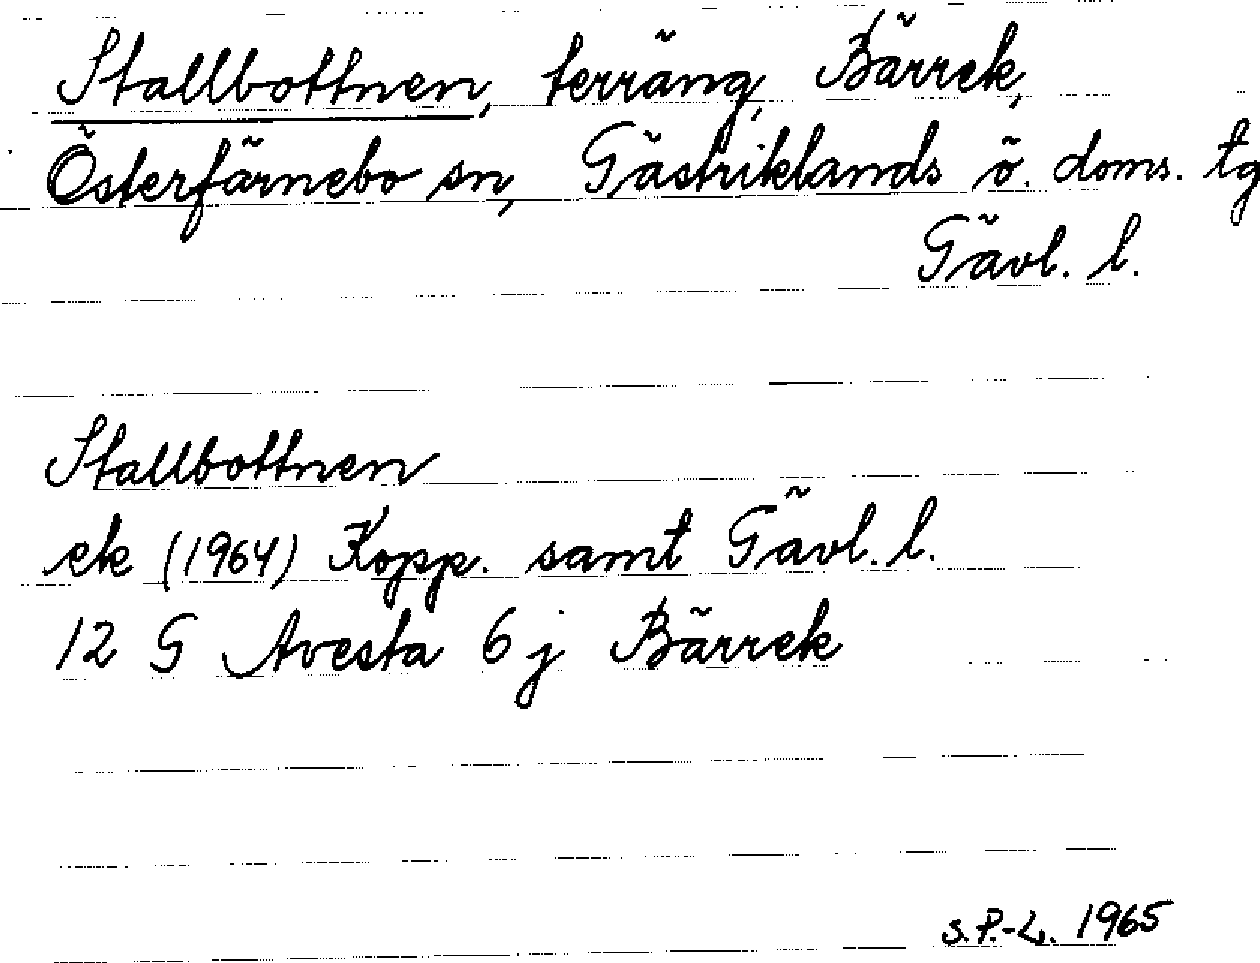 Stallbottnen, terräng, Bärrek,
Österfärnebo sn, Gästriklands ö. doms. tg
Gävl. l.
Stallbottnen
ek (1964) Kopp. samt Gävl. l.
12 G Avesta 6 j Bärrek
S.P.-L. 1965